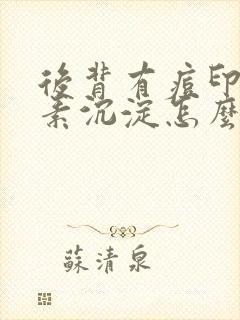 後背有痘印
素沉淀怎麼
蘇清泉